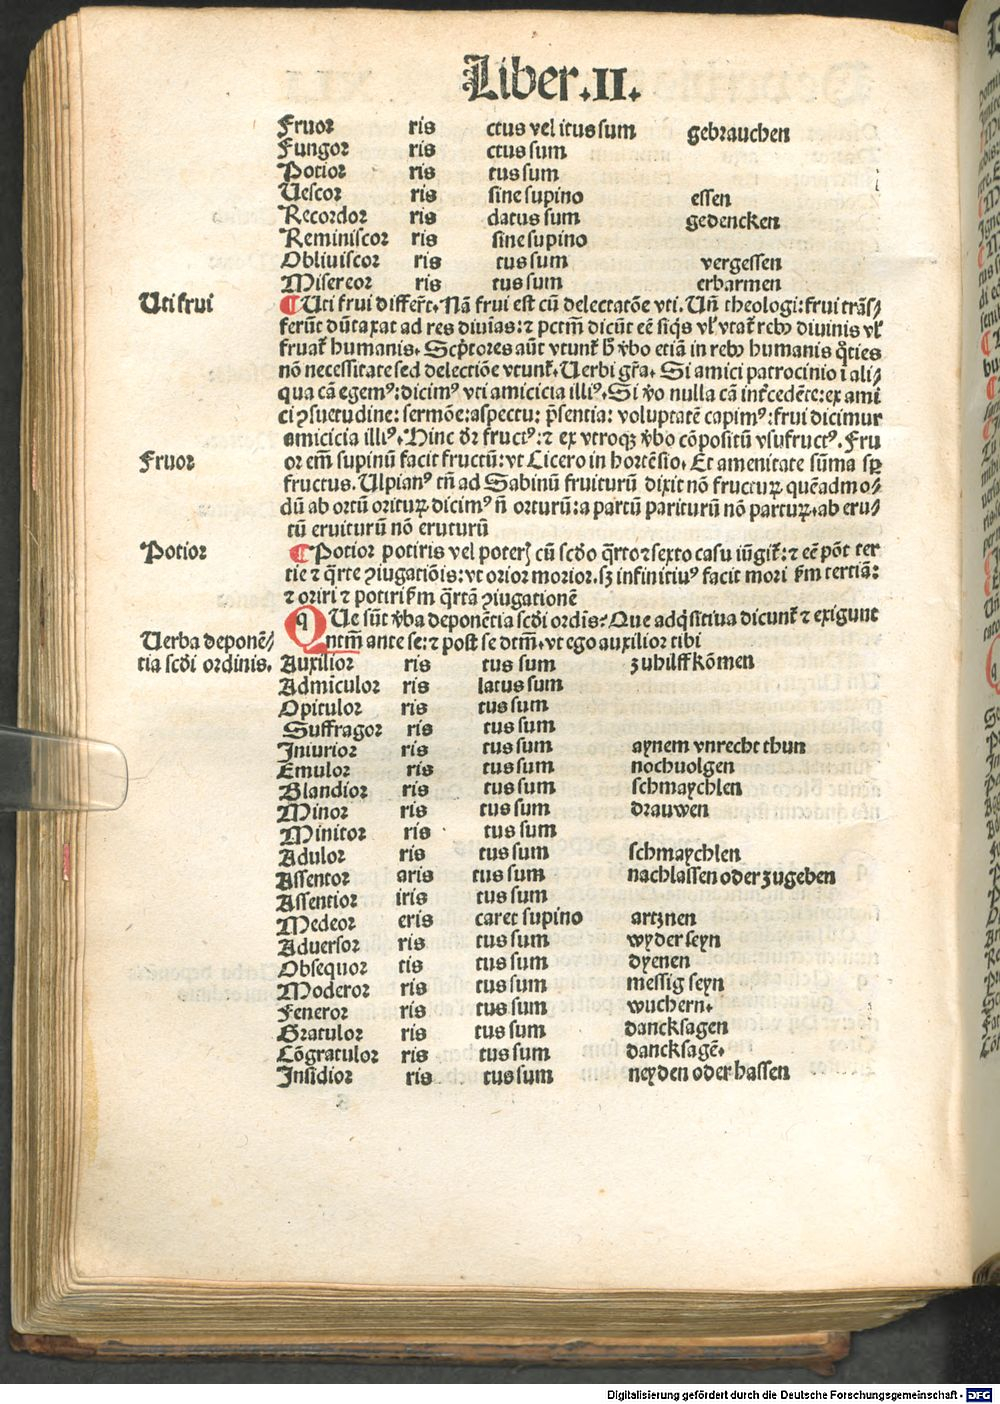 Liber.II.
Fruor ris ctus vel itus sum gebrauchen
Fungor ris ctus sum
Potior ris tus sum
Uescor ris sine supino essen
Recordor ris datus sum gedencken
Reminiscor ris sine supino
Obliuiscor ris tus sum vergessen
Misereor ris tus sum erbarmen
Uti frui
¶ Uti frui differt̄. Nā frui est cū delectatōe vti. Un̄ theologi: frui trās/
ferūt dūtaxat ad res diuīas: ⁊ pctm̄ dicūt eē siq̄s vl̓ vtat̄ rebꝰ diuinis vl̓
fruat̄ humanis. Scp̄tores aūt vtunt̄ vºbo etiā in rebꝰ humanis q̄ties
nō necessitate sed delectiōe vtunt̄. Uerbi gr̄a. Si amici patrocinio ī ali/
qua cā egemꝰ: dicimꝰ vti amicicia illiꝰ. Si vºo nulla cā intͤcedēte: ex ami
ci ꝯsuetudine: sermōe: aspectu: p̄sentia: voluptatē capimꝰ: frui dicimur
amicicia illiꝰ. Hinc dr̄ fructꝰ: ⁊ ex vtroqꝫ vºbo cōpositū vsufructꝰ. Fru
Fruor
or em̄ supinū facit fructū: vt Cicero in hortēsio. Et amenitate sūma sꝑ
fructus. Ulpianꝰ tn̄ ad Sabinū fruiturū dixit nō fructuꝝ quēadmo/
dū ab ortū orituꝝ dicimꝰ n̄ orturū: a partū pariturū nō partuꝝ. ab eru/
tū eruiturū nō eruturū
Potior
¶ Potior potiris vel poteris cū scd̄o q̄rto ⁊ sexto casu iūgit̄: ⁊ eē pōt ter
tie ⁊ q̄rte ꝯiugatiōis: vt orior morior. sꝫ infinitiuꝰ facit mori ẜm tertiā:
⁊ oriri ⁊ potiri ẜm q̄rtā ꝯiugationē
Que sūt vºba deponētia scd̄i ordīs? Que adq̄sitiua dicunt̄ ⁊ exigunt
Uerba deponē/
tia scd̄i ordinis.
ntm̄ ante se: ⁊ post se dtm̄. vt ego auxilior tibi
Auxilior ris tus sum zuhilff kōmen
Admiculor ris latus sum
Opitulor ris tus sum
Suffragor ris tus sum
Iniurior ris tus sum aynem vnrecht thun
Emulor ris tus sum nochuolgen
Blandior ris tus sum schmaychlen
Minor ris tus sum drauwen
Minitor ris tus sum
Adulor ris tus sum schmaychlen
Assentor aris tus sum nachlassen oder zugeben
Assentior iris tus sum
Medeor eris caret supino artznen
Aduersor ris tus sum wyder seyn
Obsequor tis tus sum dyenen
Moderor ris tus sum messig seyn
Feneror ris tus sum wuchern.
Gratulor ris tus sum dancksagen
Cōgratulor ris tus sum dancksagē.
Insidior ris tus sum neyden oder hassen
Digitalisierung gefördert durch die Deutsche Forschungsgemeinschaft - DFG